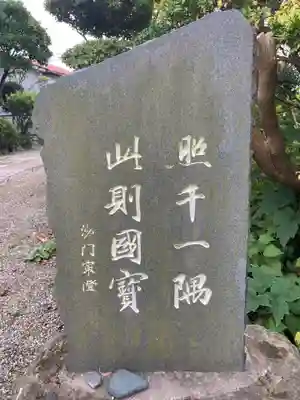 照千一隅
此則國寳
沙门寂澄